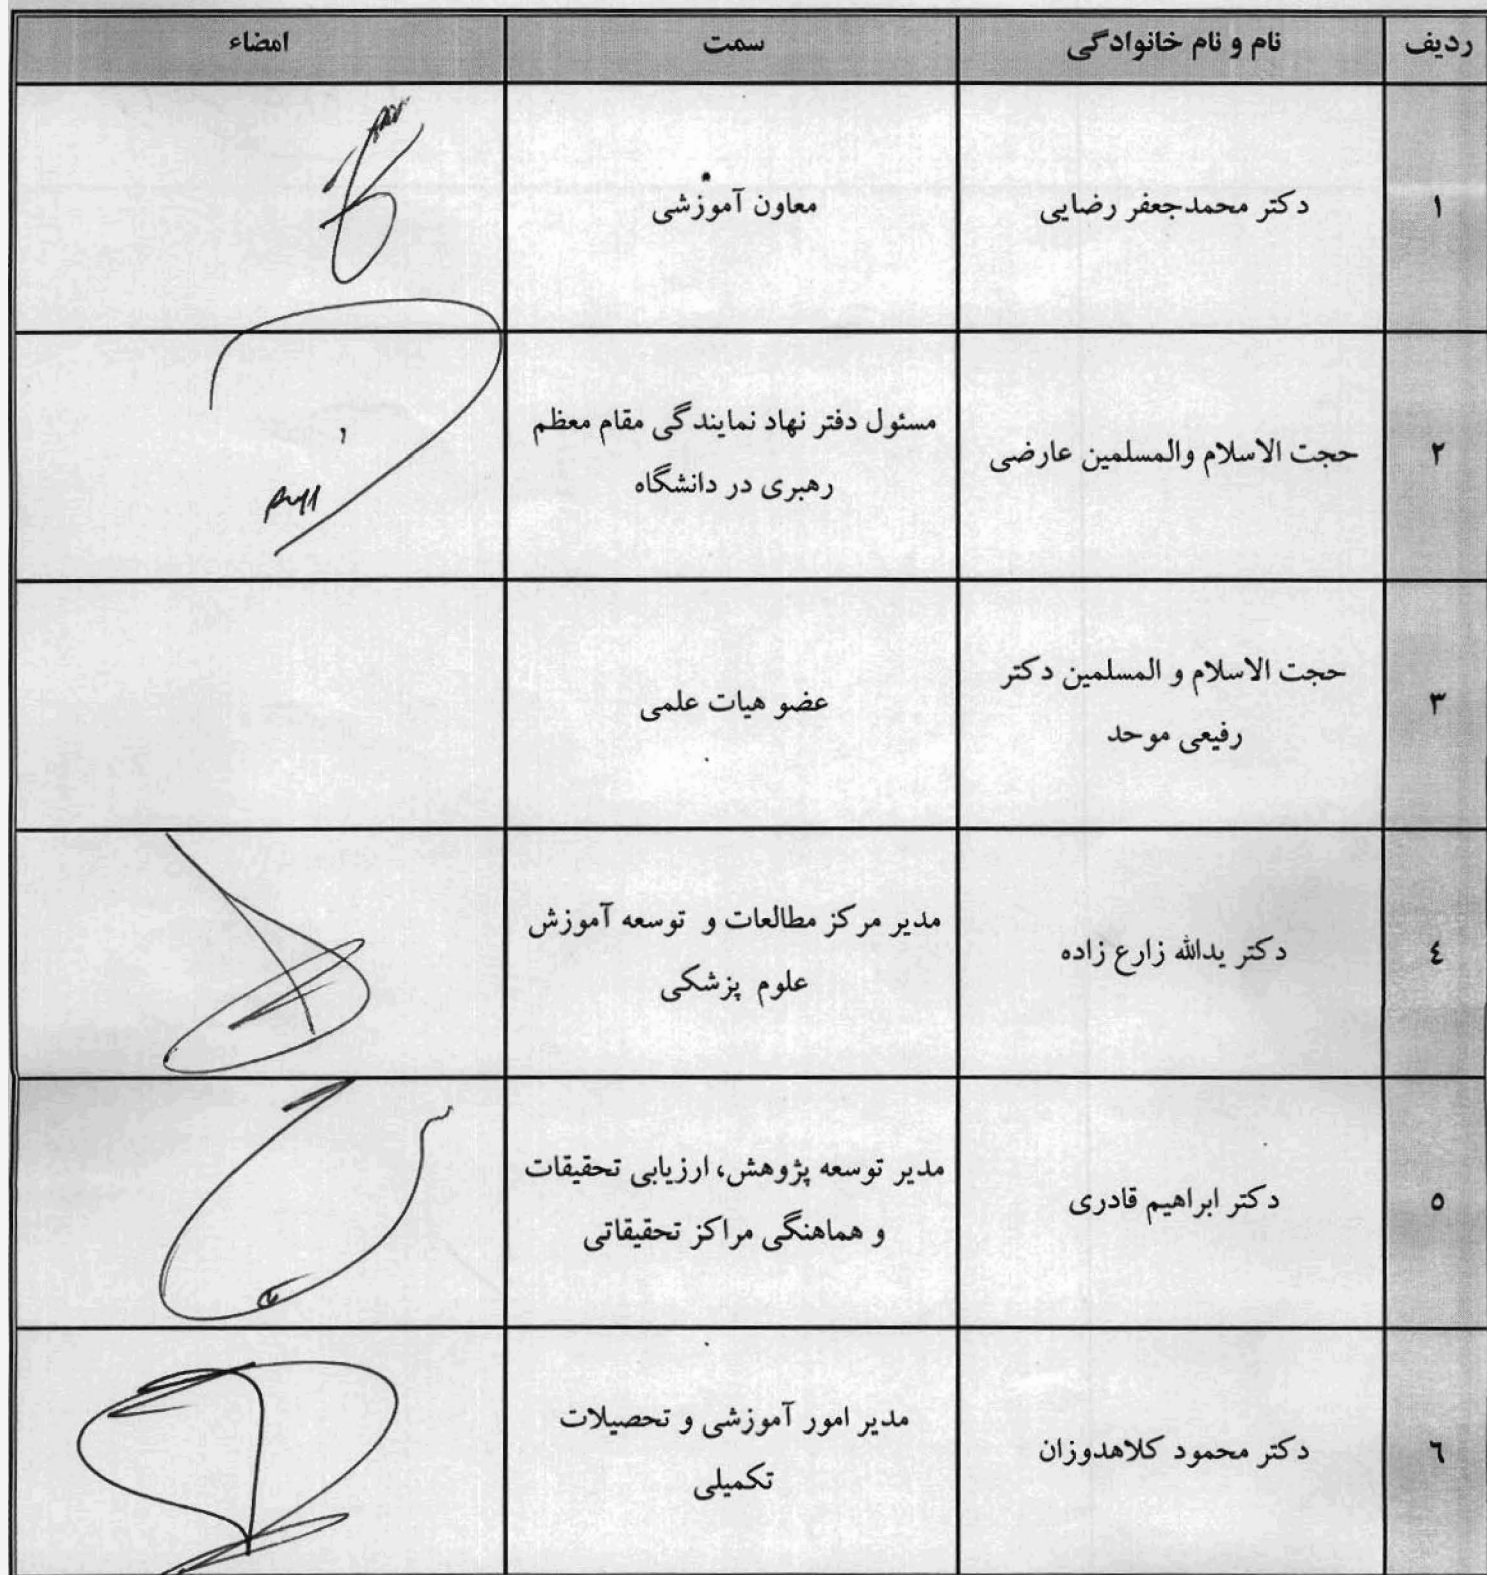 ردیف نام و نام خانوادگی سمت امضاء
۱ دکتر محمدجعفر رضایی معاون آموزشی
۲ حجت الاسلام والمسلمین عارضی مسئول دفتر نهاد نمایندگی مقام معظم
رهبری در دانشگاه
۳ حجت الاسلام و المسلمین دکتر عضو هیات علمی
رفیعی موحد
٤ دکتر یدالله زارع زاده مدیر مرکز مطالعات و توسعه آموزش
علوم پزشکی
٥ دکتر ابراهیم قادری مدیر توسعه پژوهش، ارزیابی تحقیقات
و هماهنگی مراکز تحقیقاتی
٦ دکتر محمود کلاهدوزان مدیر امور آموزشی و تحصیلات
تکمیلی